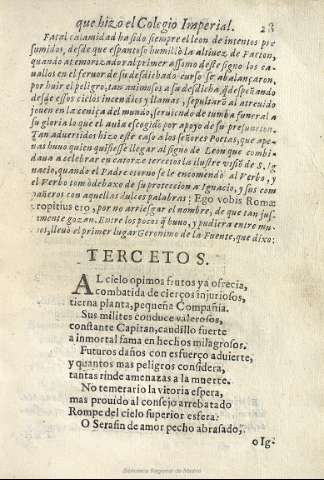 que hizo el Colegio Imperial. 28
Fatal calamidad ha sido siempre el leon de intentos pre
sumidos, desde que espantoso humillò la altiuez de Faeton,
quando atemorizado al primer assomo deste signo los ca-
uallos en el feruor de su desdichado curso se abalançaron,
por huir el peligro, tan animosos a su desdicha, q̃ despeñando
desde essos ciclos incendios y llamas, sepultarõ al atreuido
jouen en la ceniça del mundo, siruiendo de tumba funeral a
su gloria lo que el auia escogido por apoyo de su presuncion.
Tan aduertidos hizo este caso a los señores Poetas, que ape-
nas huuo quien quisiesse llegar al signo de Leon que combi-
daua a celebrar en catorze tercetos la ilustre visiõ de S. Ig
nacio, quando el Padre eterno se le encomendò al Verbo, y
el Verbo tomò debaxo de su proteccion a Ignacio, y sus com
pañeros con aquellas dulces palabras: Ego vobis Romæ
propitius ero, por no arriesgar el nombre, de que tan jus-
tamente gozan. Entre los pocos q̃ huuo, y pudiera entre mu-
chos, lleuò el primer lugar Geronimo de la Fuente, que dixo:
TERCETOS.
AL cielo opimos frutos ya ofrecia,
combatida de cierços injuriosos,
tierna planta, pequeña Compañia.
Sus milites conduce valerosos,
constante Capitan, caudillo fuerte
a inmortal fama en hechos milagrosos.
Futuros daños con esfuerço aduierte,
y quantos mas peligros considera,
tantas rinde amenazas a la muerte.
No temerario la vitoria espera,
mas prouido al consejo arrebatado
Rompe del cielo superior esfera:
O Serafin de amor pecho abrasado,
o Ig-
Biblioteca Regional de Madrid